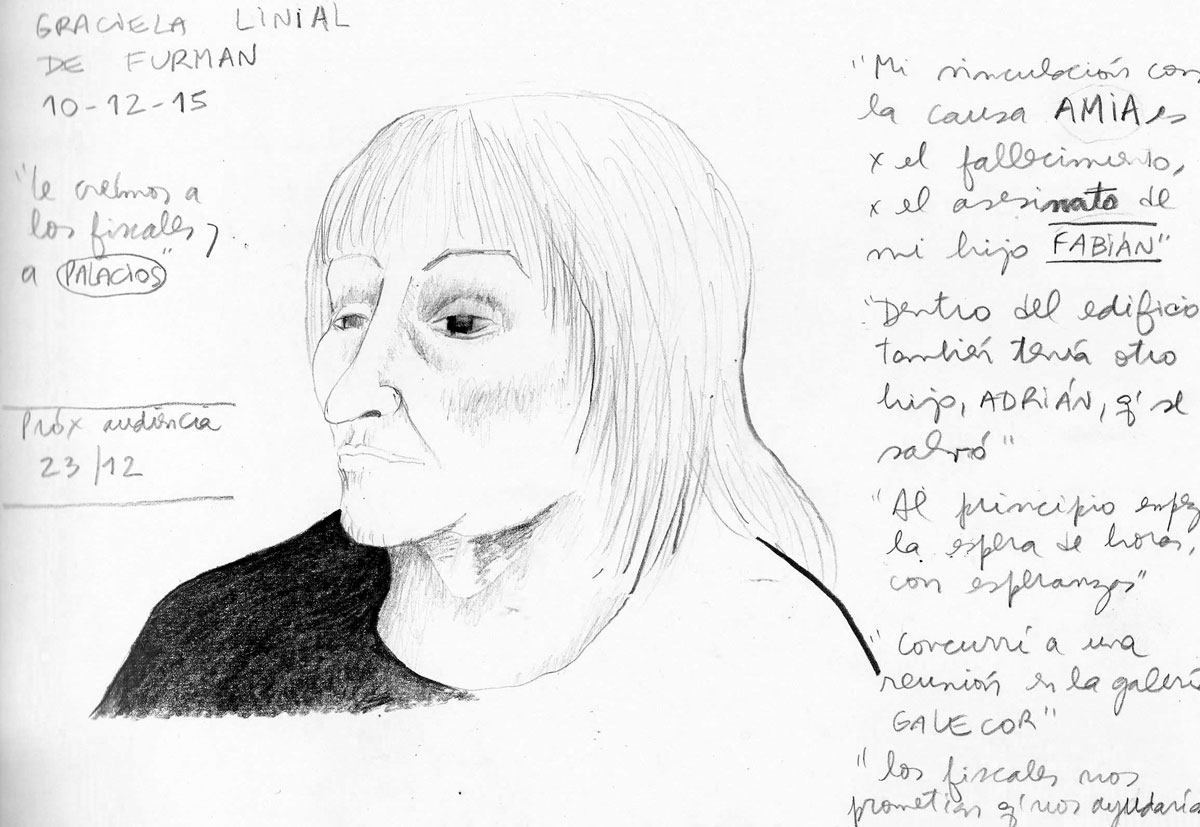 GRACIELA LINIAL
DE FURMAN
10-12-15
"le creímos a
los fiscales,
a PALACIOS"
Próx audiencia
23/12
"Mi vinculación con
la causa AMIA es
x el fallecimiento,
x el asesinato de
mi hijo FABIÁN"
"Dentro del edificio
también tenía otro
hijo, ADRIÁN, q' se
salvó"
"Al principio
la espera de horas,
con esperanzas"
"Concurrí a una
reunión en la galería
GALECOR"
"los fiscales nos
prometían q' nos ayudaría